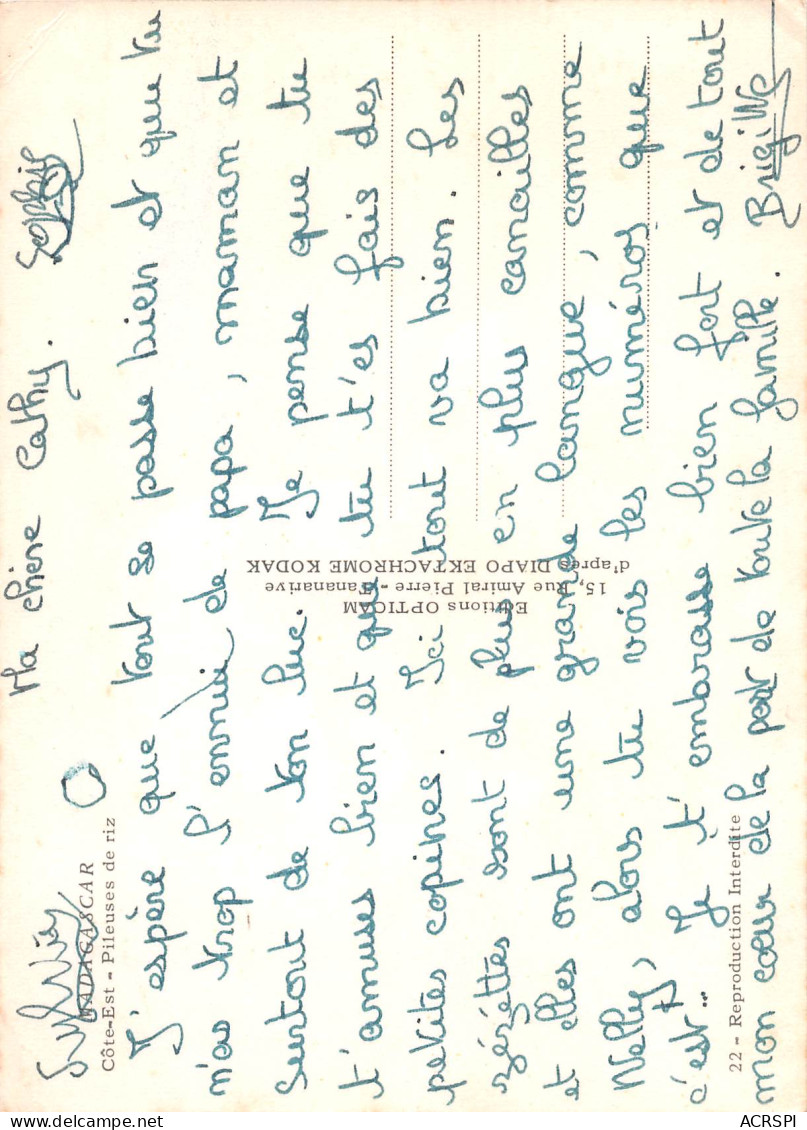 Sylvia
Ma chère Cathy.
Sophie
MADAGASCAR
Côte-Est - Pileuses de riz
J'espère que tout se passe bien et que tu
n'as trop l'ennuie de papa, maman et
surtout de ton Luc. Je pense que tu
t'amuses bien et que tu t'es fais des
petites copines. Ici tout va bien. Les
zézettes sont de plus en plus canailles
et elles ont une grande langue, comme
Nelly, alors tu vois les numéros que
c'est... Je t'embrasse bien fort et de tout
mon cœur de la part de toute la famille. Brigitte
Editions OPTICAM
15, Rue Amiral Pierre - Tananarive
d'après DIAPO EKTACHROME KODAK
22 - Reproduction Interdite
ACRSPI